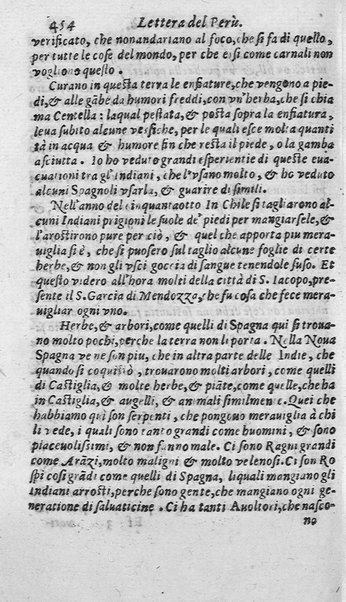 454 Lettera del Perù.
verificato, che non andariano al foco, che si fa di quello,
per tutte le cose del mondo, per che essi come carnali non
vogliono questo.
Curano in questa terra le enfiature, che vengono a pie
di, & alle gãbe da humori freddi, con vn'herba, che si chia
ma Centella: laqual pestata, & posta sopra la enfiatura,
leua subito alcune vesiche, per le quali esce molta quanti
tà in acqua & humore fin che resta il piede, o la gamba
asciutta. Io ho veduto grandi esperientie di queste eua-
cuationi tra gl'Indiani, che l'vsano molto, & ho veduto
alcuni Spagnoli vsarla, & guarire di simili.
Nell'anno del cinquantaotto In Chile si tagliarono al
cuni Indiani prigioni le suole de' piedi per mangiarsele, &
l'arrostirono pure per ciò, & quel che apporta piu mera-
uiglia si è, che si pusero sul taglio alcune foglie di certe
herbe, & non gli vscì goccia di sangue tenendole suso. Et
questo videro all'hora molti della città di S. Iacopo, pre-
sente il S. Garcia di Mendozza, che fu cosa che fece mera-
uigliar ogni vno.
Herbe, & arbori, come quelli di Spagna qui si troua-
no molto pochi, perche la terra non li porta. Nella Noua
Spagna ve ne son piu, che in altra parte delle Indie, che
quando si coquistò, trouarono molti arbori, come quelli
di Castiglia, & molte herbe, & piãte, come quelle, che ha
in Castiglia, & augelli, & animali similmente. Quei che
habbiamo qui son serpenti, che pongono merauiglia à chi
li vede, i quali sono tanto grandi come huomini, & sono
piaceuolissimi, & non fanno male. Ci sono Ragni grandi
come Arãzi, molto maligni & molto velenosi. Ci son Ro
spi cosi grãdi come quelli di Spagna, li quali mangiano gli
Indiani arrosti, perche sono gente, che mangiano ogni ge
neratione di saluaticine. Ci ha tanti Auoltori, che nasco-
no